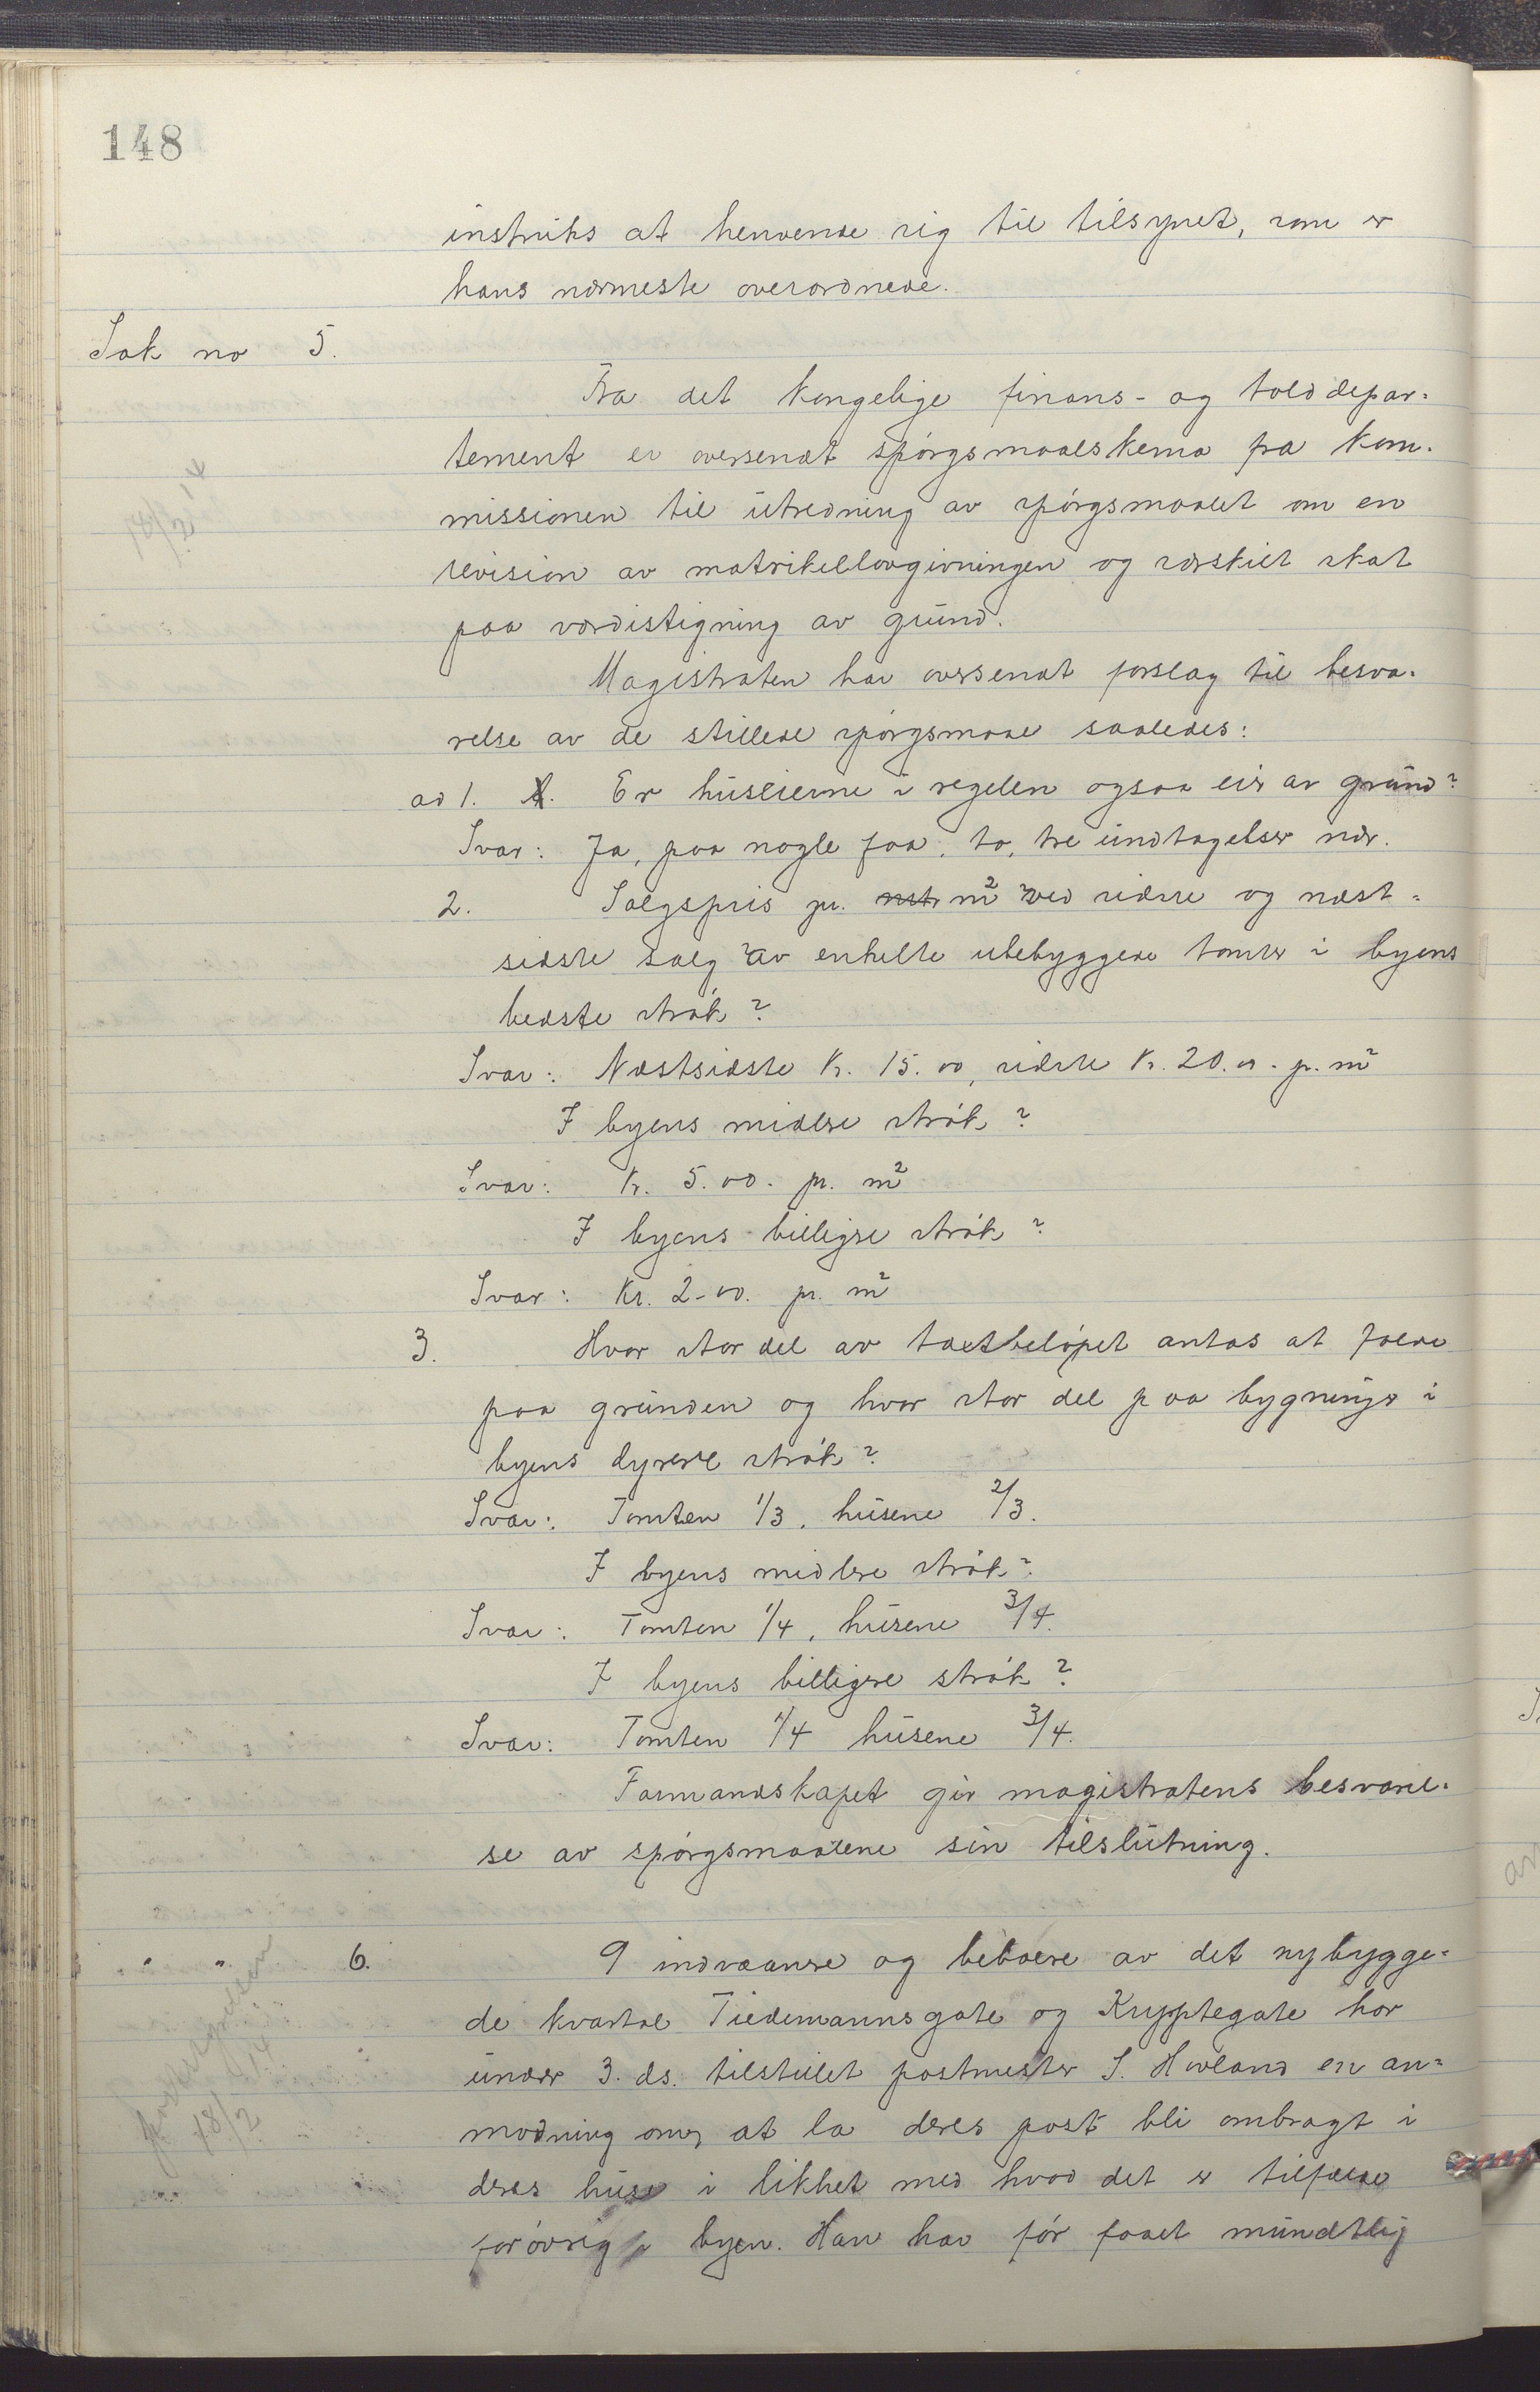 148
instruks at henvende sig til tilsynet, som er
hans nærmeste overordnede.
Sak no 5.
Fra det kongelige finans- og tolddepar-
tement er oversendt spørgsmaalskema fra kom-
missionen til utredning av spørgsmaalet om en
revision av matrikellovgivningen og særskilt skat
paa værdistigning av grund.
Magistraten har oversendt forslag til besva-
relse av de stillede spørgsmaal saaledes:
ad 1. Er huseierne i regelen ogsaa eier av grund?
Svar: Ja, paa nogle faa, to, tre undtagelser nær.
2. Salgspris pr. m² ved sidste og næst-
sidste salg av enkelte ubebyggede tomter i byens
bedste strøk?
Svar: Næstsidste Kr. 15.00, sidste Kr. 20.00. p. m²
I byens midlere strøk?
Svar: Kr. 5.00. pr. m²
I byens billigere strøk?
Svar: Kr. 2-00. pr. m²
3. Hvor stor del av taxtbeløpet antas at falde
paa grunden og hvor stor del paa bygninger i
byens dyreste strøk?
Svar: Tomten 1/3, husene 2/3.
I byens midlere strøk?
Svar: Tomten 1/4, husene 3/4.
I byens billigere strøk?
Svar: Tomten 1/4 husene 3/4.
Formandskapet gir magistratens besvarel-
se av spørgsmaalene sin tilslutning.
" " 6. 9 indvaanere og beboere av det nybygge-
de kvartal Tiedemannsgate og Krypptegate har
under 3. ds. tilstillet postmester S. Hovland en an-
modning om at la deres post bli ombragt i
deres huse i likhet med hvad det er tilfælde
forøvrig i byen. Han har før faaet mundtlig
18/2 14